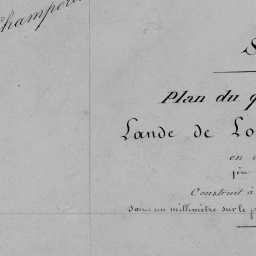 Champ
S
Plan du q
Lande de Lo
en
Construit à
dans un millimètre sur le p